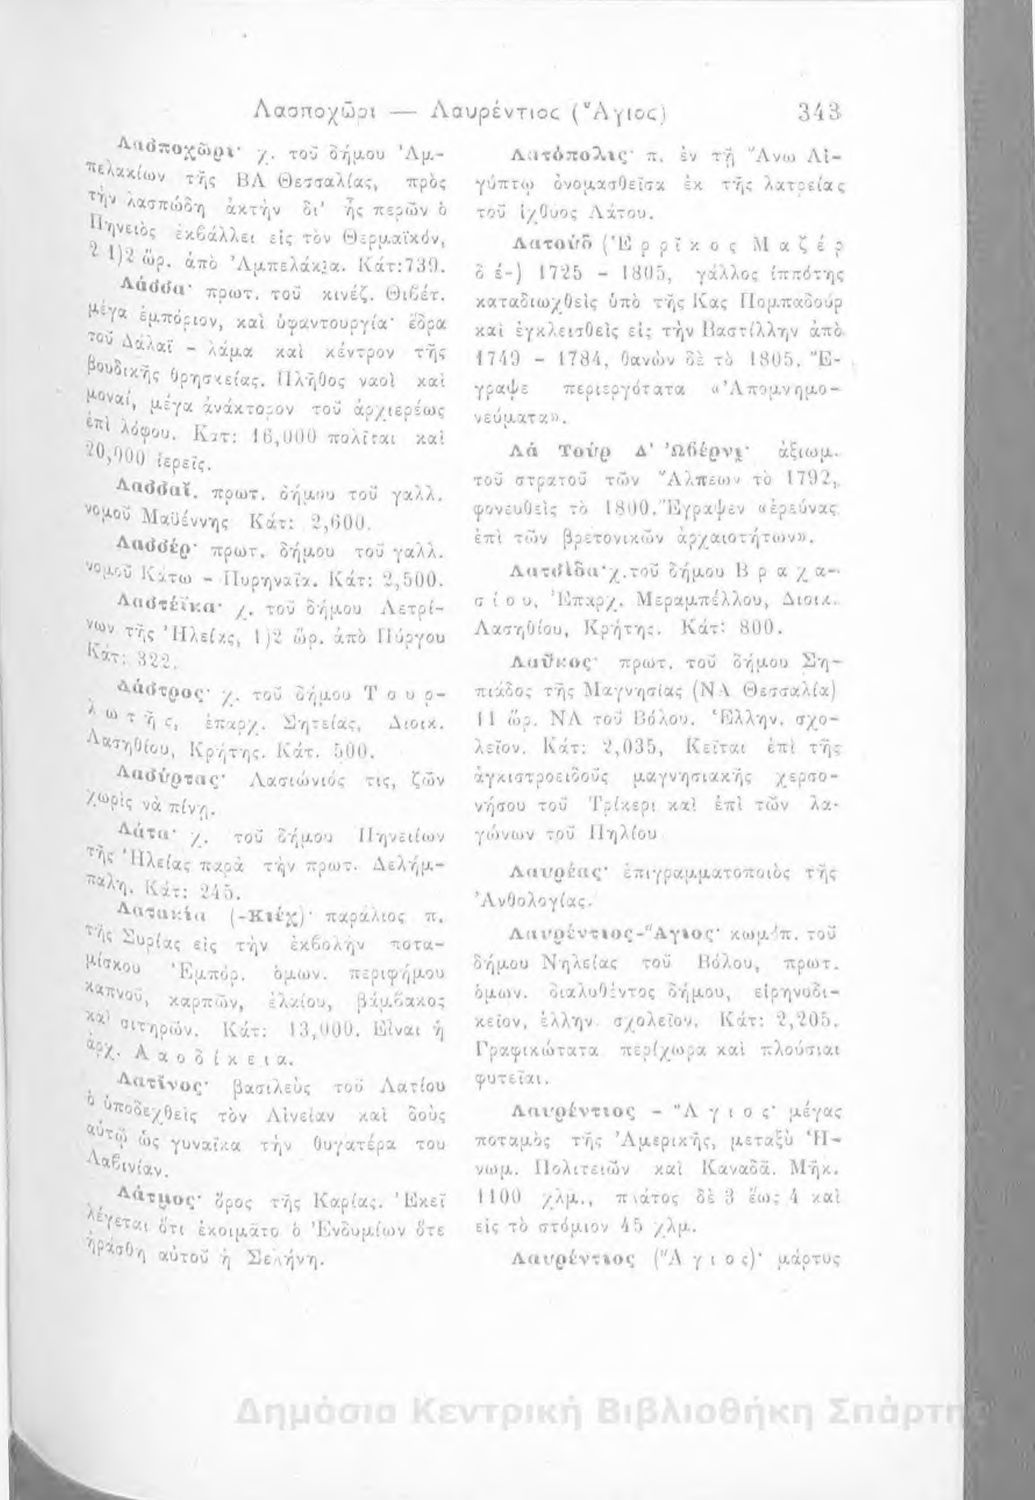 Λασποχῶρι — Λαυρέντιος (Ἅγιος) 343
Λασποχῶρι· χ. τοῦ δήμου Ἀμ-
πελακίων τῆς ΒΑ Θεσσαλίας, πρὸς
τὴν λασπώδη ἀκτὴν δι' ἧς περῶν ὁ
Πηνειὸς ἐκβάλλει εἰς τὸν Θερμαϊκόν,
2 1)2 ὥρ. ἀπὸ Ἀμπελάκια. Κάτ:739.
Λάσσα· πρωτ. τοῦ κινέζ. Θιβέτ.
μέγα ἐμπόριον, καὶ ὑφαντουργία· ἕδρα
τοῦ Δάλαϊ - λάμα καὶ κέντρον τῆς
βουδικῆς θρησκείας. Πλῆθος ναοὶ καὶ
μοναί, μέγα ἀνάκτορον τοῦ ἀρχιερέως
ἐπὶ λόφου. Κατ: 16,000 πολῖται καὶ
20,000 ἱερεῖς.
Λασσαῖ. πρωτ. δήμου τοῦ γαλλ.
νομοῦ Μαϋέννης Κάτ: 2,600.
Λασσέρ· πρωτ. δήμου τοῦ γαλλ.
νομοῦ Κάτω - Πυρηναῖα. Κάτ: 2,500.
Λαστέϊκα· χ. τοῦ δήμου Λετρί-
νων τῆς Ἠλείας, 1)2 ὥρ. ἀπὸ Πύργου
Κάτ: 322.
Λάστρος· χ. τοῦ δήμου Τουρ-
λωτῆς, ἐπαρχ. Σητείας, Διοικ.
Λασηθίου, Κρήτης. Κάτ. 500.
Λασύρτας· Λασιώνιός τις, ζῶν
χωρὶς νὰ πίνῃ.
Λάτα· χ. τοῦ δήμου Πηνειίων
τῆς Ἠλείας παρὰ τὴν πρωτ. Δελήμ-
παλη. Κάτ: 245.
Λατακία (-Κιέχ)· παράλιος π.
τῆς Συρίας εἰς τὴν ἐκβολὴν ποτα-
μίσκου Ἐμπόρ. ὁμων. περιφήμου
καπνοῦ, καρπῶν, ἐλαίου, βάμβακος
καὶ σιτηρῶν. Κάτ: 13,000. Εἶναι ἡ
ἀρχ. Λαοδίκεια.
Λατῖνος· βασιλεὺς τοῦ Λατίου
ὁ ὑποδεχθεὶς τὸν Αἰνείαν καὶ δοὺς
αὐτῷ ὡς γυναῖκα τὴν θυγατέρα του
Λαβινίαν.
Λάτμος· ὄρος τῆς Καρίας. Ἐκεῖ
λέγεται ὅτι ἐκοιμᾶτο ὁ Ἐνδυμίων ὅτε
ἠράσθη αὐτοῦ ἡ Σελήνη.
Λατόπολις· π. ἐν τῇ Ἄνω Αἰ-
γύπτῳ ὀνομασθεῖσα ἐκ τῆς λατρείας
τοῦ ἰχθύος Λάτου.
Λατοὺδ (Ἐρρῖκος Μαζέρ
δέ-) 1725 - 1805, γάλλος ἱππότης
καταδιωχθεὶς ὑπὸ τῆς Κας Πομπαδοὺρ
καὶ ἐγκλεισθεὶς εἰς τὴν Βαστίλλην ἀπὸ
1749 - 1784, θανὼν δὲ τὸ 1805. Ἔ-
γραψε περιεργότατα «Ἀπομνημο-
νεύματα».
Λὰ Τοὺρ Δ' Ὠβέρνι· ἀξιωμ.
τοῦ στρατοῦ τῶν Ἄλπεων τὸ 1792,
φονευθεὶς τὸ 1800. Ἔγραψεν «ἐρεύνας
ἐπὶ τῶν βρετονικῶν ἀρχαιοτήτων».
Λατσίδα·χ.τοῦ δήμου Βραχα-
σίου, Ἐπαρχ. Μεραμπέλλου, Διοικ.
Λασηθίου, Κρήτης. Κάτ: 800.
Λαῦκος· πρωτ. τοῦ δήμου Ση-
πιάδος τῆς Μαγνησίας (ΝΑ Θεσσαλία)
11 ὥρ. ΝΑ τοῦ Βόλου. Ἑλλην. σχο-
λεῖον. Κάτ: 2,035, Κεῖται ἐπὶ τῆς
ἀγκιστροειδοῦς μαγνησιακῆς χερσο-
νήσου τοῦ Τρίκερι καὶ ἐπὶ τῶν λα-
γώνων τοῦ Πηλίου
Λαυρέας· ἐπιγραμματοποιὸς τῆς
Ἀνθολογίας.
Λαυρέντιος-Ἅγιος· κωμόπ. τοῦ
δήμου Νηλείας τοῦ Βόλου, πρωτ.
ὁμων. διαλυθέντος δήμου, εἰρηνοδι-
κεῖον, ἑλλην. σχολεῖον. Κάτ: 2,205.
Γραφικώτατα περίχωρα καὶ πλούσιαι
φυτεῖαι.
Λαυρέντιος - Ἅγιος· μέγας
ποταμὸς τῆς Ἀμερικῆς, μεταξὺ Ἡ-
νωμ. Πολιτειῶν καὶ Καναδᾶ. Μῆκ.
1100 χλμ., πλάτος δὲ 3 ἕως 4 καὶ
εἰς τὸ στόμιον 45 χλμ.
Λαυρέντιος (Ἅγιος)· μάρτυς
Δημόσια Κεντρική Βιβλιοθήκη Σπάρτη